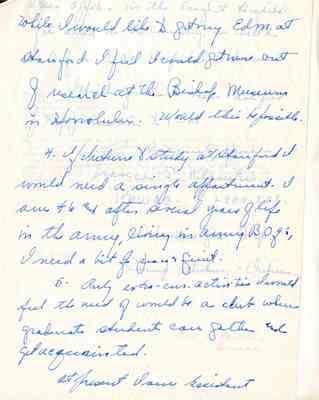 while I would like to get my Ed.M. at
Stanford I feel I could get more out
of research at the Bishop Museum
in Honolulu. Would this be possible.
4. If I choose to study at Stanford I
would need a single apartment. I
am 46 and after several years of life
in the army, living in army B.O.Q's,
I need a bit of peace & quiet.
5. Only extra-cur. activities I would
feel the need of would be a club where
graduate students can gather and
get acquainted.
At present I am resident